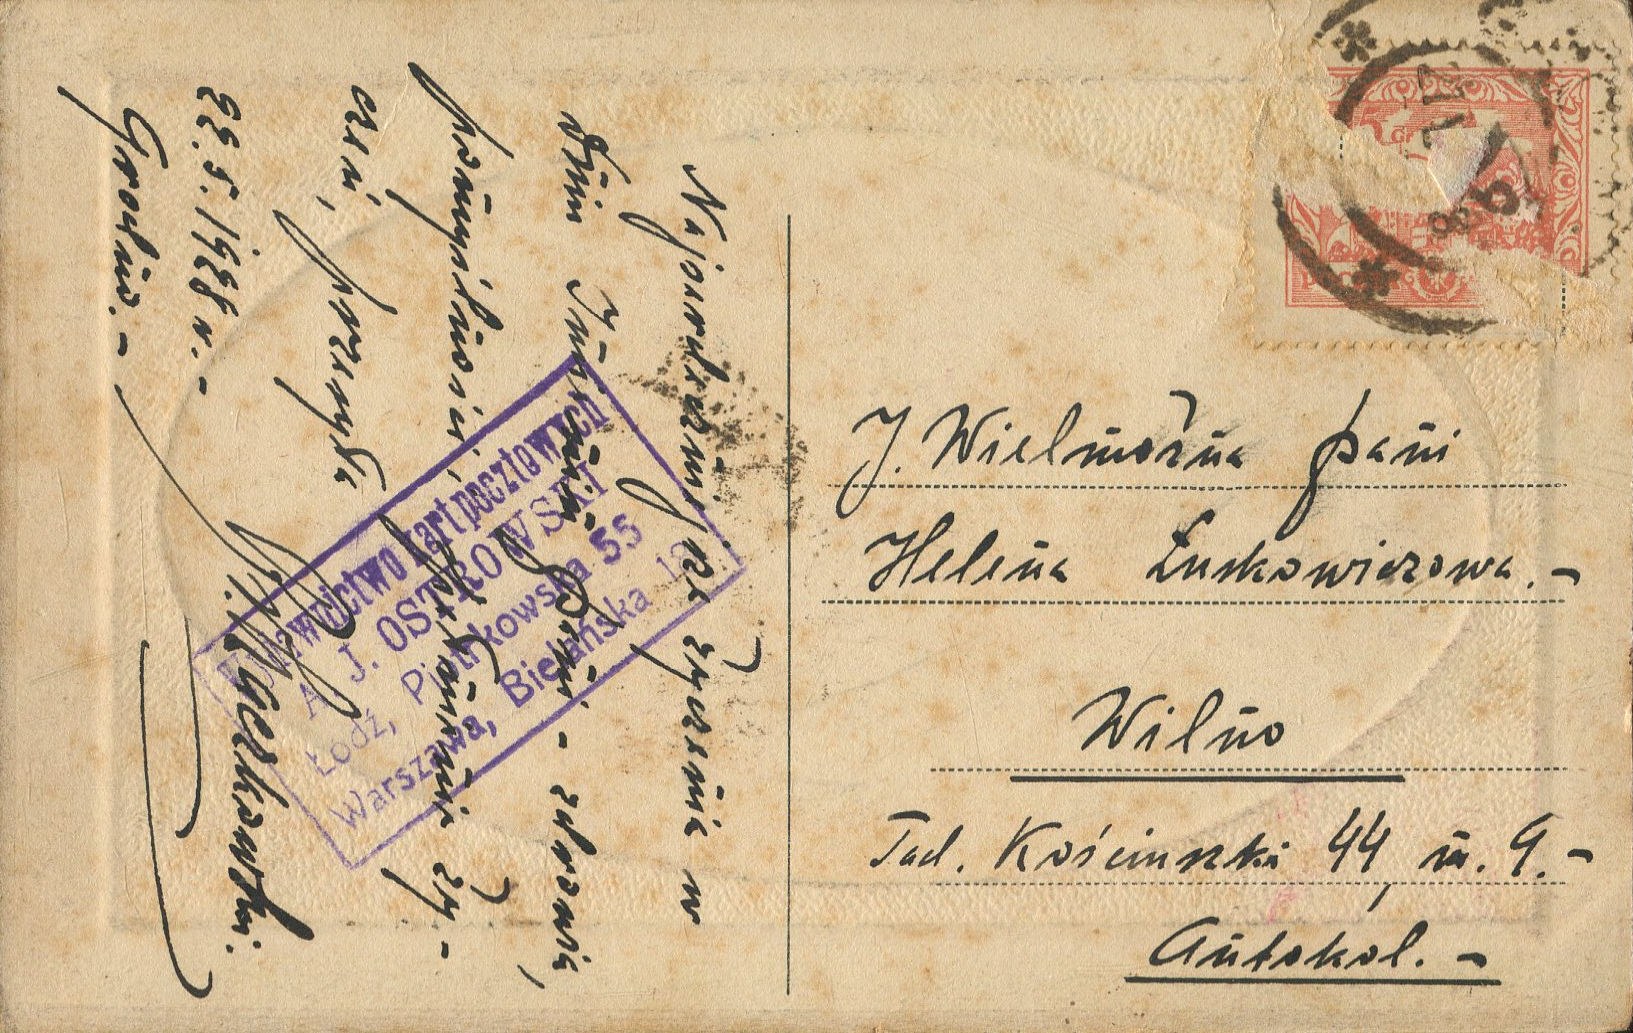 Najserdeczniejsze życzenia w
dniu Imienin Pani. - zdrowia,
pomyślności,
życzenia, przesyła
22.5.1928 r. -
Grodno. -
Wydawnictwo kart pocztowych
A. J. OSTROWSKI
Łódź, Piotrkowska 55
Warszawa, Bielańska 18
J. Wielmożna Pani
Helena Łuskowiczowa. -
Wilno
Tad. Kościuszki 44, m. 9. -
Antokol. -